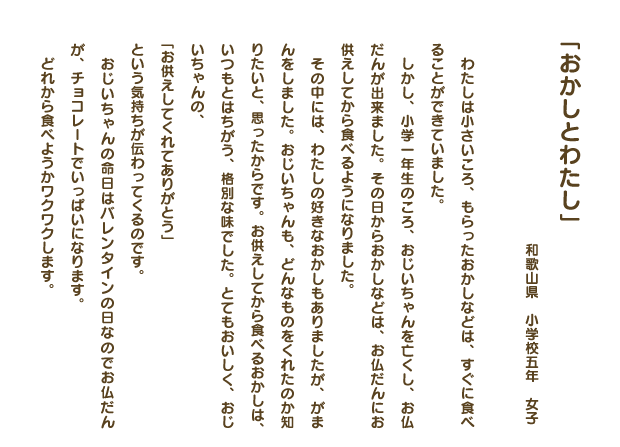 「おかしとわたし」
和歌山県　小学校五年　女子
わたしは小さいころ、もらったおかしなどは、すぐに食べ
ることができていました。
しかし、小学一年生のころ、おじいちゃんを亡くし、お仏
だんが出来ました。その日からおかしなどは、お仏だんにお
供えしてから食べるようになりました。
その中には、わたしの好きなおかしもありましたが、がま
んをしました。おじいちゃんも、どんなものをくれたのか知
りたいと、思ったからです。お供えしてから食べるおかしは、
いつもとはちがう、格別な味でした。とてもおいしく、おじ
いちゃんの、
「お供えしてくれてありがとう」
という気持ちが伝わってくるのです。
おじいちゃんの命日はバレンタインの日なのでお仏だん
が、チョコレートでいっぱいになります。
どれから食べようかワクワクします。